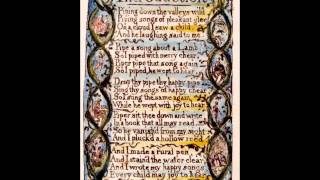 Introduction
Piping down the valleys wild
Piping songs of pleasant glee
On a cloud I saw a child.
And he laughing said to me.
Pipe a song about a Lamb;
So I piped with merry chear,
Piper pipe that song again—
So I piped, he wept to hear.
Drop thy pipe thy happy pipe
Sing thy songs of happy chear,
So I sung the same again
While he wept with joy to hear
Piper sit thee down and write
In a book that all may read—
So he vanish'd from my sight.
And I pluck'd a hollow reed.
And I made a rural pen,
And I stain'd the water clear,
And I wrote my happy songs
Every child may joy to hear